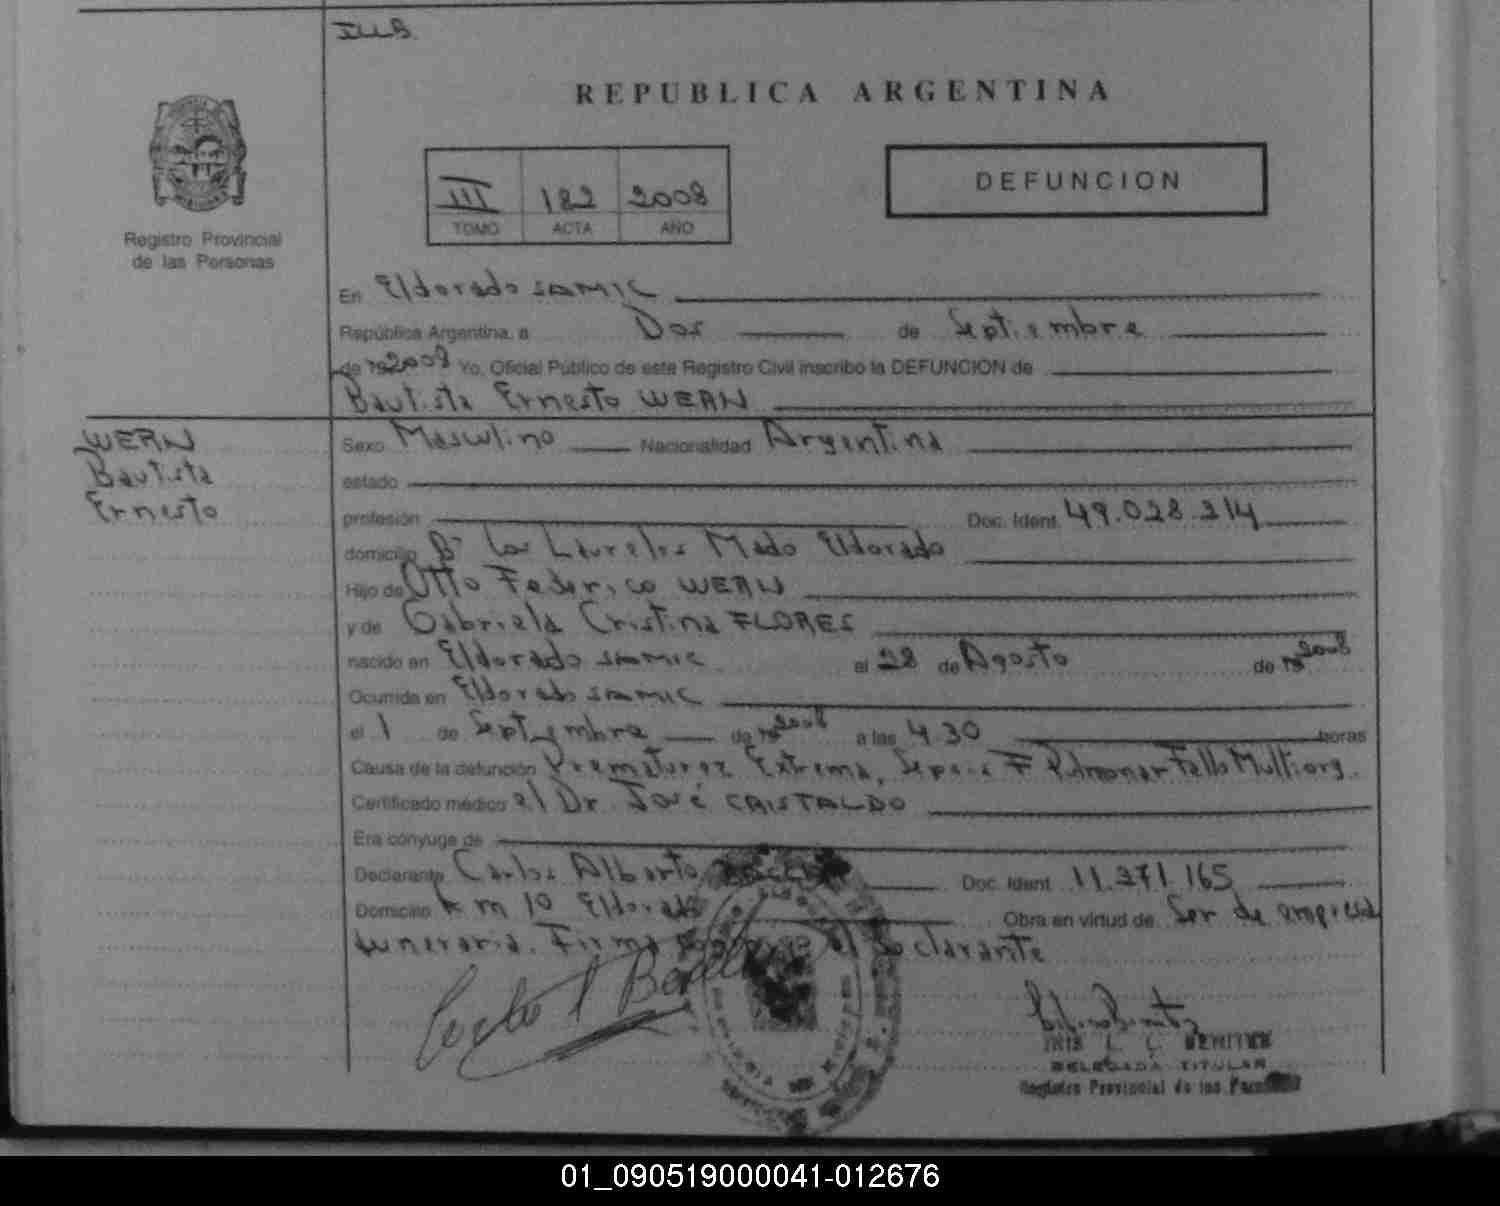 REPUBLICA ARGENTINA
III 182 2008
TOMO ACTA AÑO
DEFUNCION
Registro Provincial
de las Personas
En Eldorado SAMIC
República Argentina, a Dos de Septiembre
de 2008 Yo, Oficial Público de este Registro Civil inscribo la DEFUNCION de
Bautista Ernesto WERN
WERN
Bautista
Ernesto
Sexo Masculino Nacionalidad Argentina
estado
profesión Doc. Ident. 49.028.214
domicilio Bº Los Laureles Mado Eldorado
Hijo de Otto Federico WERN
y de Gabriela Cristina FLORES
nacido en Eldorado SAMIC el 28 de Agosto de 2008
Ocurrida en Eldorado SAMIC
el 1 de Septiembre de 2008 a las 4 30 horas
Causa de la defunción Prematurez Extrema, Sepsis F Pulmonar Fallo Multiorg.
Certificado médico el Dr. José CRISTALDO
Era cónyuge de
Declarante Carlos Alberto
Doc. Ident. 11.371.165
Domicilio Km 10 Eldorado Obra en virtud de Ser de empresa
funeraria. Firma el declarante
IRIS L. C. BENITEZ
DELEGADA TITULAR
Registro Provincial de las Personas
01_090519000041-012676